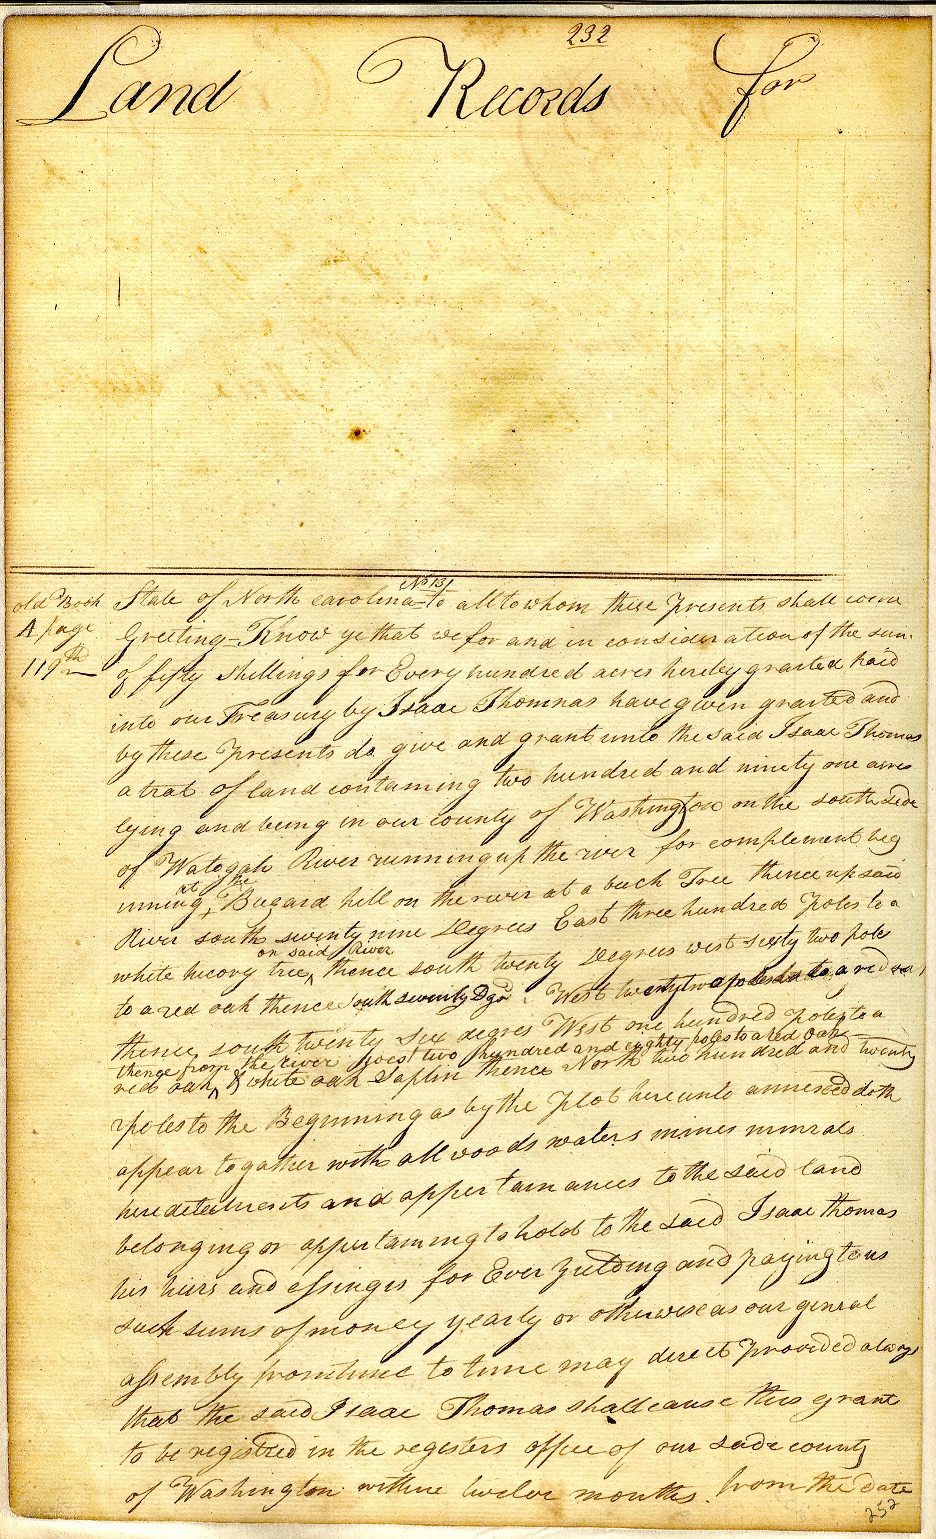 232
Land Records for
old Book
A page
119th
No 131
State of North carolina - to all to whom these Presents shall come
Greeting - Know ye that we for and in consideration of the sum
of fifty shillings for Every hundred acres hereby granted paid
into our Treasury by Isaac Thomnas have given granted and
by these Presents do give and grant unto the said Isaac Thomas
a trat of land containing two hundred and ninety one acres
lying and being in our county of Washington on the south side
of Watogah River running up the rver for complement beg
at the
inning Buzard hill on the river at a buch Tree thence up said
River south seventy nine Degrees East three hundred Poles to a
on said River
white hicory tree, thence south twenty Degrees west sixty two pole
to a red oak thence South seventy West twenty two poles to a red oak
thence south twenty six degres West one hundred poles to a
thence from the river West two hundred and eighty poles to a red oak
red oak & white oak Saplin thence North two hundred and twenty
Poles to the Beginning as by the Plot hereunto annexed doth
appear togather with all woods waters mines minrals
hereditements and appertainances to the said land
belonging or appertaining to hold to the said Isaac thomas
his heirs and assinges for Ever Yielding and paying to us
such sums of money yearly or otherwise as our genral
assembly from time to time may direct Provided always
that the said Isaac Thomas shall cause this grant
to be registred in the registers office of our sade county
of Washington within twelve months from the date
252